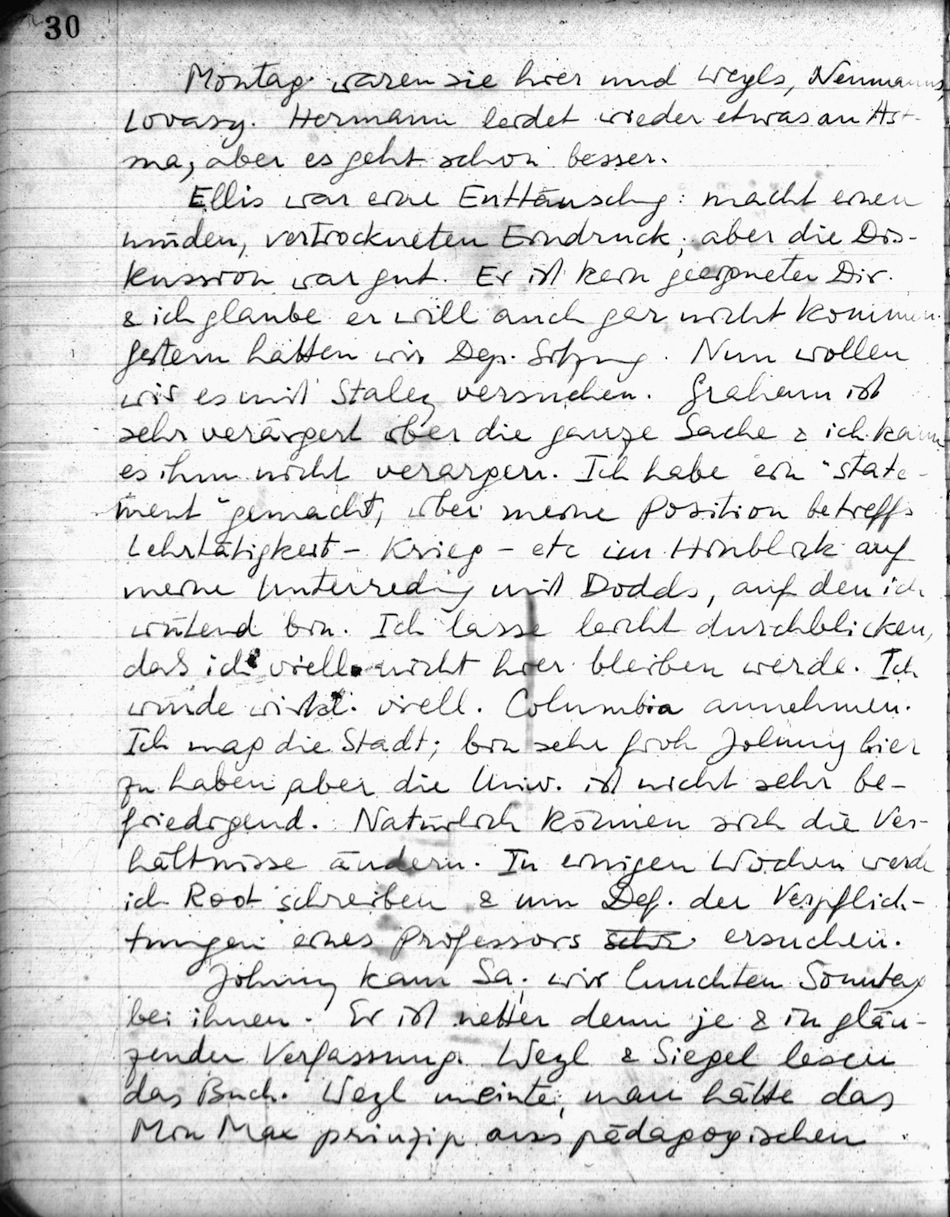 30
Montag waren sie hier und Weyls, Neumanns,
Lovasy. Hermann leidet wieder etwas an Ast-
ma, aber es geht schon besser.
Ellis war eine Enttäuschg: macht einen
müden, vertrockneten Eindruck; aber die Dis-
kussion war gut. Er ist kein geeigneter Dir.
& ich glaube er will auch gar nicht kommen.
Gestern hatten wir Dep. Sitzung. Nun wollen
wir es mit Staley versuchen. Graham ist
sehr verärgert über die ganze Sache & ich kann
es ihm nicht verargen. Ich habe ein "state-
ment" gemacht, über meine Position betreffs
Lehrtätigkeit – Krieg – etc im Hinblick auf
meine Unterredung mit Dodds, auf den ich
wütend bin. Ich lasse leicht durchblicken,
daß ich viell. nicht hier bleiben werde. Ich
würde wirkl. viell. Columbia annehmen.
Ich mag die Stadt; bin sehr froh Johnny hier
zu haben, aber die Univ. ist nicht sehr be-
friedigend. Natürlich können sich die Ver-
hältnisse ändern. In einigen Wochen werde
ich Root schreiben & um Def. der Verpflich-
tungen eines Professors ersuchen.
Johnny kam Sa. wir lunchten Sonntag
bei ihnen. Er ist netter denn je & in glän-
zender Verfassung. Weyl & Siegel lesen
das Buch. Weyl meinte, man hätte das
Min Max prinzip aus pädagogischen